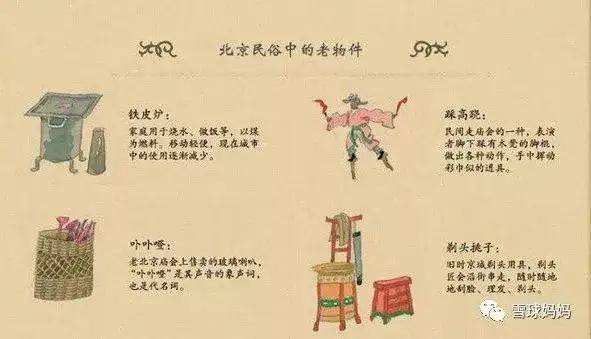 北京民俗中的老物件
铁皮炉：
家庭用于烧水、做饭等，以煤
为燃料。移动轻便，现在城市
中的使用逐渐减少。
踩高跷：
民间走庙会的一种，表演
者脚下踩有木凳的脚棍，
做出各种动作，手中挥动
彩巾似的道具。
卟卟噔：
老北京庙会上售卖的玻璃喇叭，
“卟卟噔”是其声音的象声词，
也是代名词。
剃头挑子：
旧时京城剃头用具，剃头
匠会沿街串走，随时随地
地刮脸、理发、剃头。
雪球妈妈